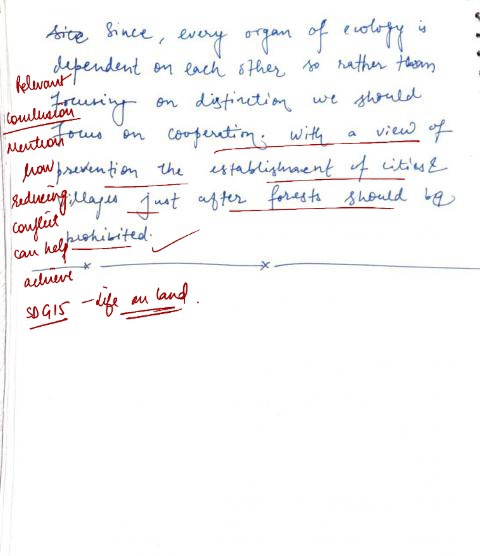 Since, every organ of ecology is
dependent on each other so rather than
focusing on distinction we should
focus on cooperation. With a view of
prevention the establishment of cities &
villages just after forests should be
prohibited.
Relevant
conclusion
mention
how
reducing
conflict
can help
achieve
SDG15 - life on land.